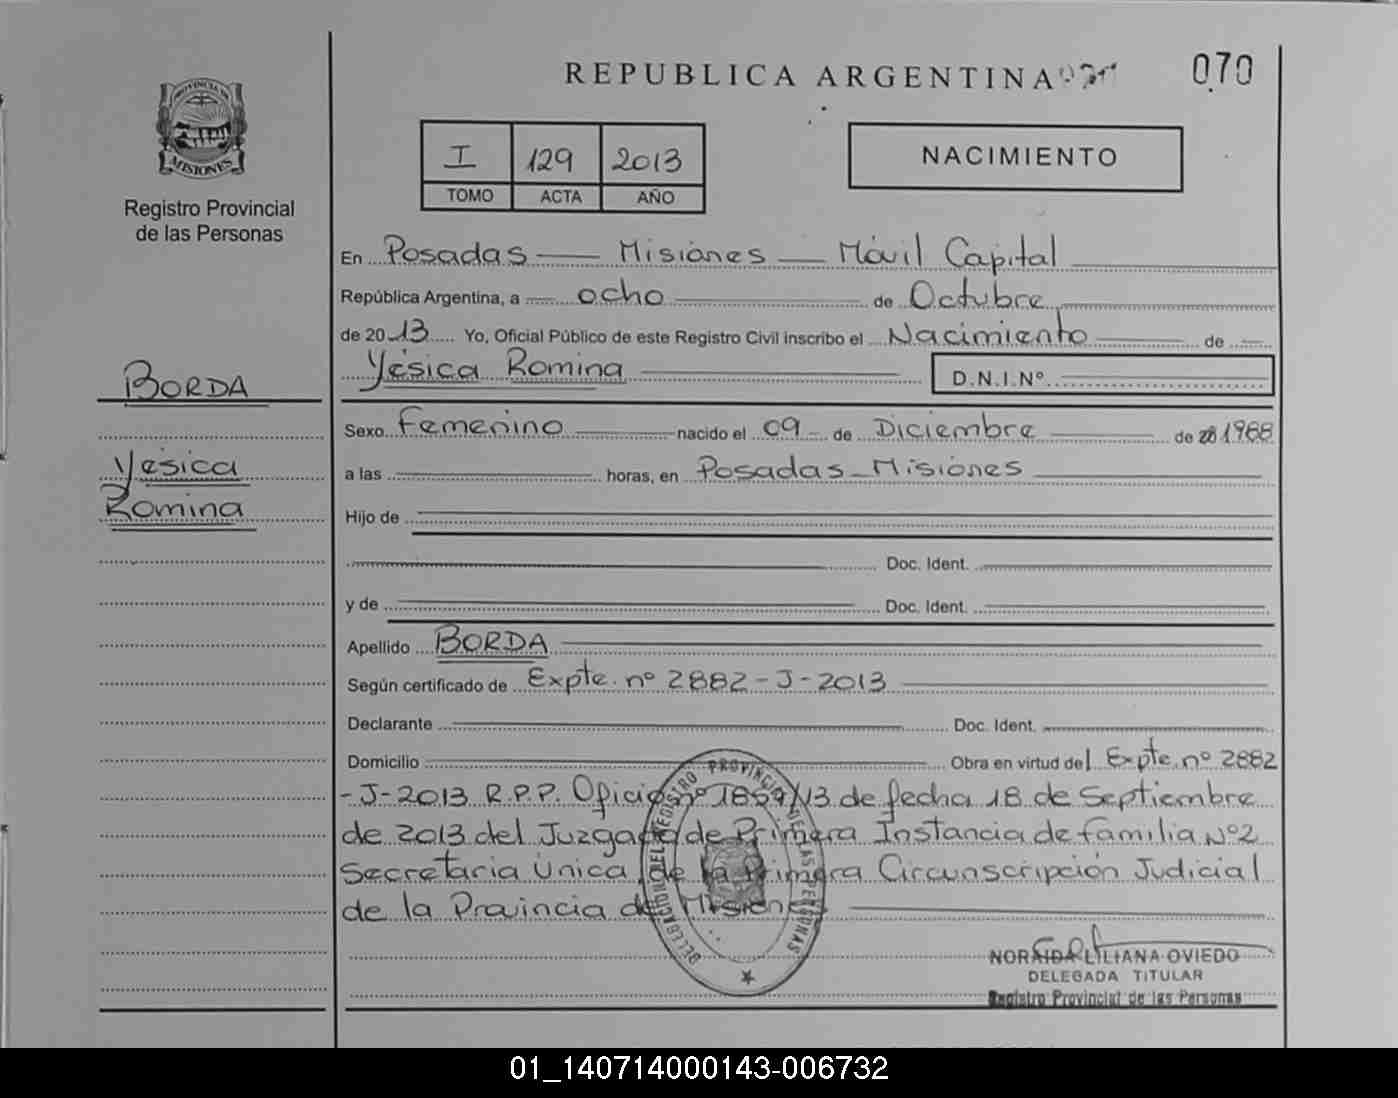 REPUBLICA ARGENTINA
070
PROVINCIA DE
MISIONES
Registro Provincial
de las Personas
I 129 2013
TOMO ACTA AÑO
NACIMIENTO
En Posadas — Misiones — Móvil Capital
República Argentina, a ocho de Octubre
de 2013 Yo, Oficial Público de este Registro Civil inscribo el Nacimiento de
Yésica Romina D.N.I.Nº
BORDA
Yésica
Romina
Sexo Femenino nacido el 09 de Diciembre de 1988
a las horas, en Posadas - Misiones
Hijo de
Doc. Ident.
y de Doc. Ident.
Apellido BORDA
Según certificado de Expte. nº 2882-J-2013
Declarante Doc. Ident.
Domicilio Obra en virtud del Expte. nº 2882
-J-2013 R.P.P. Oficio nº 1859/13 de fecha 18 de Septiembre
de 2013 del Juzgado de Primera Instancia de Familia Nº2
Secretaria Única, de la Primera Circunscripción Judicial
de la Provincia de Misiones
DELEGACION DEL REGISTRO PROVINCIAL DE LAS PERSONAS
NORAIDA LILIANA OVIEDO
DELEGADA TITULAR
Registro Provincial de las Personas
01_140714000143-006732